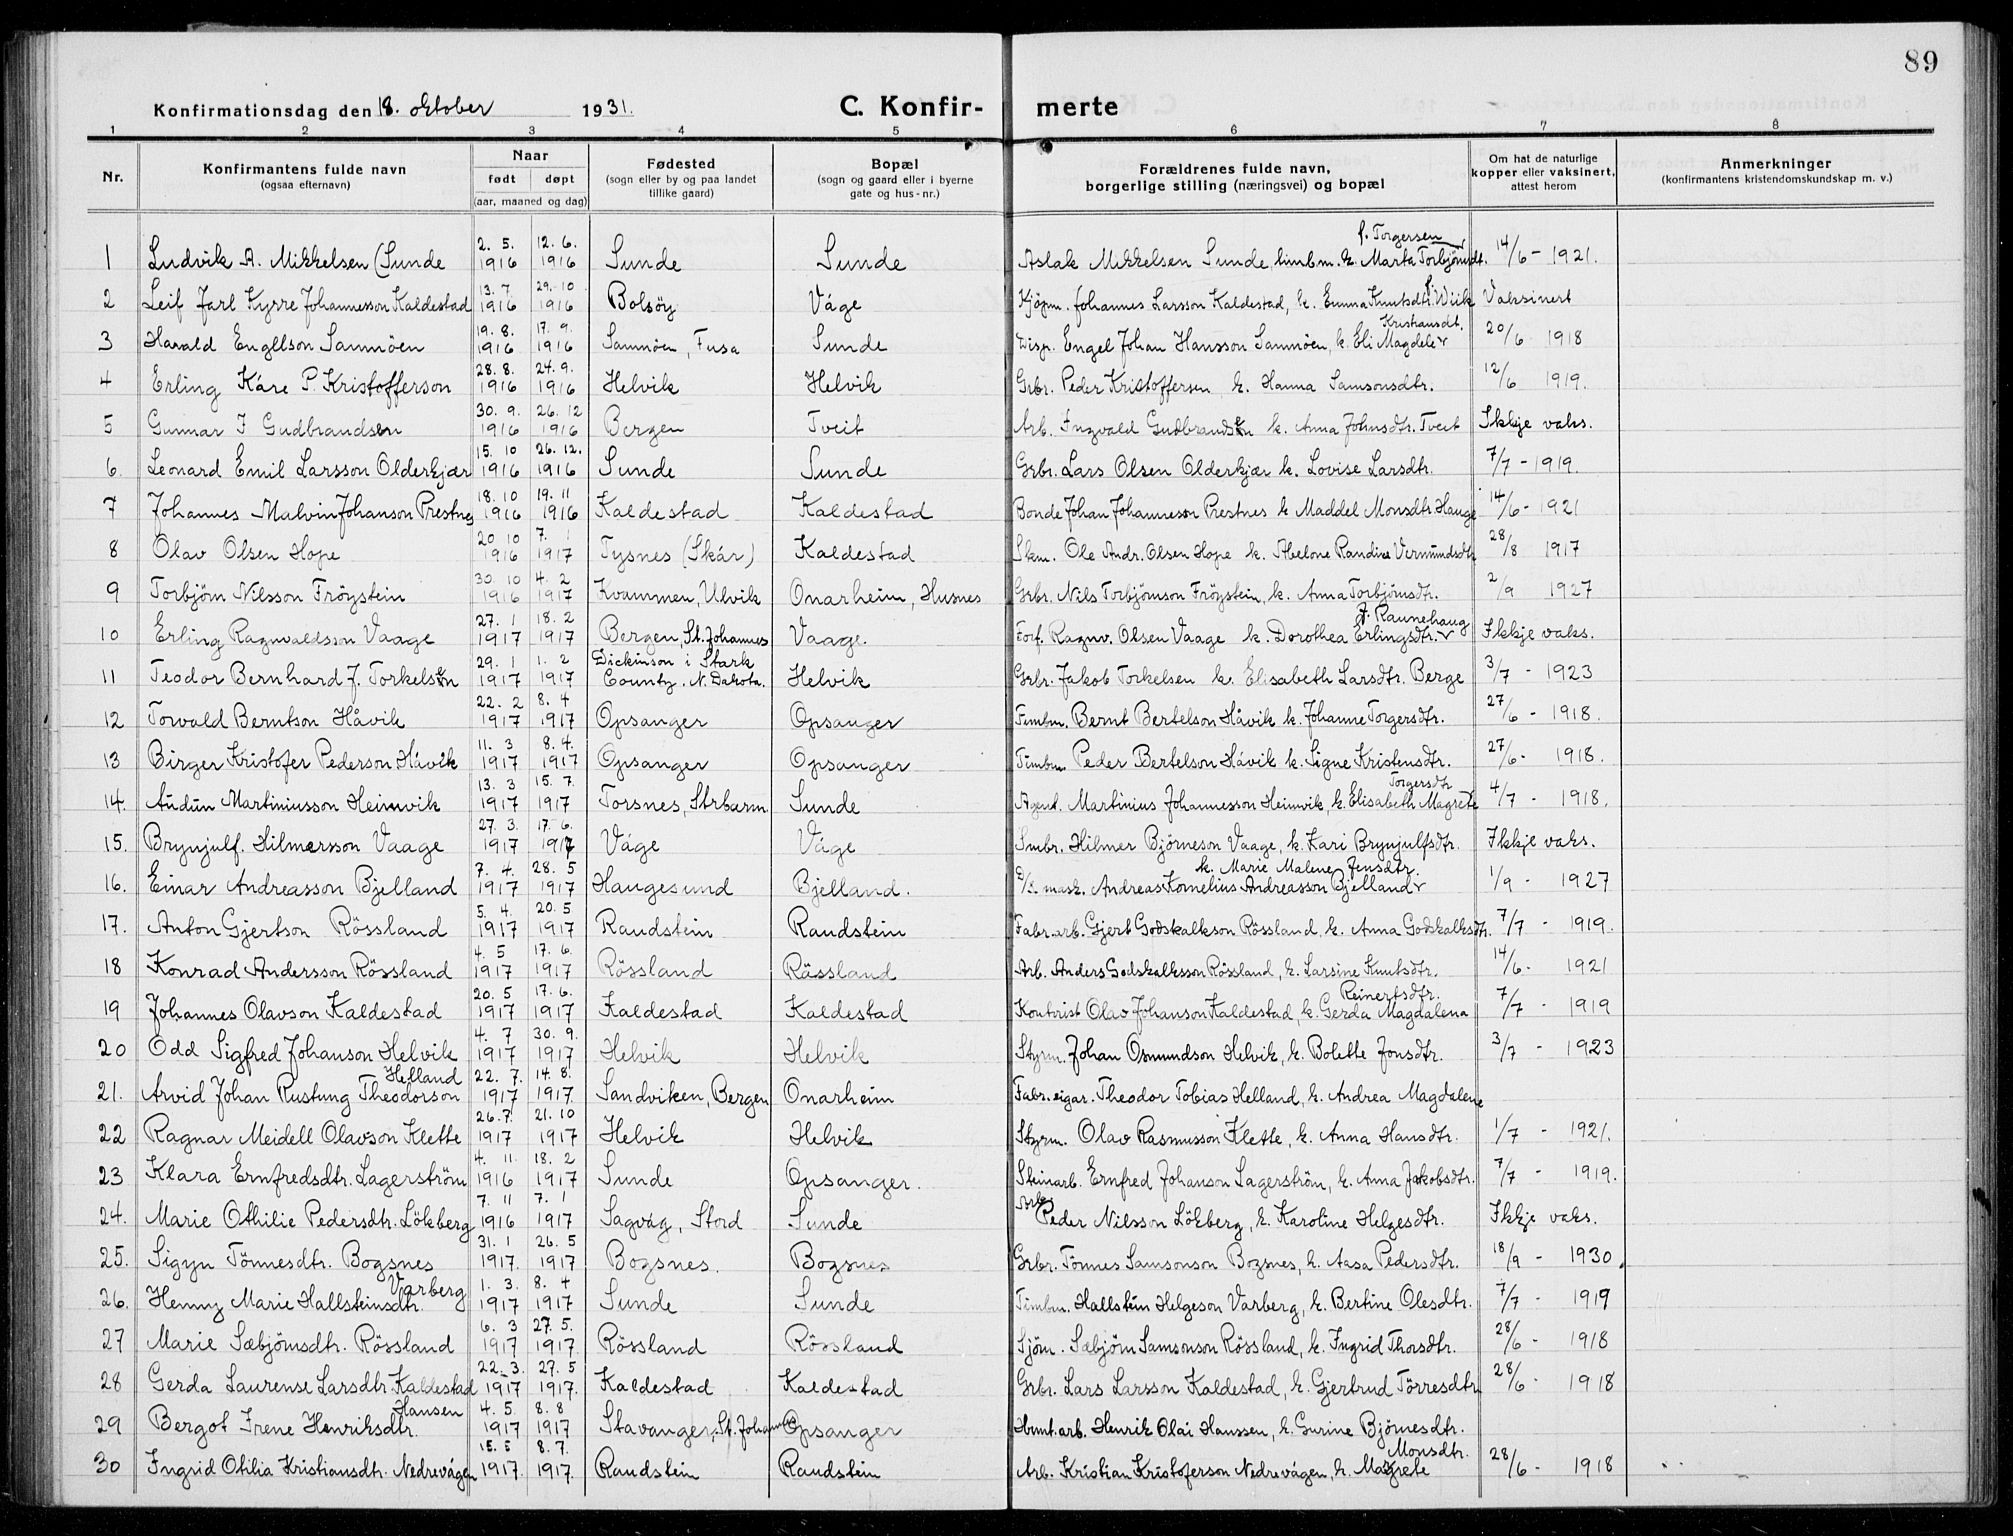 89
Konfirmationsdag den 18. oktober 1931. C. Konfir- merte
1 2 3 4 5 6 7 8
Nr. Konfirmantens fulde navn (ogsaa efternavn) Naar født døpt (aar, maaned og dag) Fødested (sogn eller by og paa landet tillike gaard) Bopæl (sogn og gaard eller i byerne gate og hus-nr.) Forældrenes fulde navn, borgerlige stilling (næringsvei) og bopæl Om hat de naturlige kopper eller vaksinert, attest herom Anmerkninger (konfirmantens kristendomskundskap m. v.)
1 Ludvik A. Mikkelsen (Sunde 2. 5. 1916 12. 6. 1916 Sunde Sunde Aslak Mikkelsen Sunde, timbm. k. Marta Torbjörnsdt. f. Torgersen 14/6 - 1921.
2 Leif Jarl Kyrre Johannesson Kaldestad 13. 7 1916 29. 10 1916 Bolsöy Våge Kjöpm. Johannes Larsson Kaldestad, k. Emma Knutsdt. f. Wiik Vaksinert
3 Harald Engelson Samnöen 19. 8. 1916 17. 9. 1916 Samnöen, Fusa Sunde Disp. Engel Johan Hansson Samnöen, k. Eli Magdele Kristiansdt. 20/6 1918
4 Erling Kåre P. Kristofferson 28. 8. 1916 24. 9. 1916 Helvik Helvik Grbr. Peder Kristoffersen k. Hanna Samsonsdtr. 12/6 1919.
5 Gunnar I Gudbrandsen 30. 9. 1916 26. 12 1916 Bergen Tveit Arb. Ingvald Gudbrandson k. Anna Johnsdtr. Tveit Ikkje vaks.
6. Leonard Emil Larsson Olderkjær 15. 10 1916 26. 12. 1916 Sunde Sunde Grbr. Lars Olsen Olderkjær k. Lovise Larsdtr. 7/7 - 1919.
7 Johannes Malvin Johanson Prestnes 18. 10 1916 19. 11 1916 Kaldestad Kaldestad Bonde Johan Johannesson Prestnes k Maddel Monsdtr. Hauge 14/6 - 1921
8 Olav Olsen Hope 20 10 1916 7. 1 1917 Tysnes (Skår) Kaldestad Skm. Ole Andr. Olsen Hope k. Abelone Randine Vermundsdtr 28/8 1917
9 Torbjörn Nilsson Fröystein 30. 10 1916 4. 2 1917 Kvammen, Ulvik Onarheim, Husnes Grbr. Nils Torbjörnson Fröystein, k. Anna Torbjörnsdtr. 2/9 1927
10 Erling Ragnvaldsson Vaage 27. 1 1917 18. 2 1917 Bergen, St. Johannes Vaage. Forf. Ragnv. Olsen Vaage k. Dorothea Erlingsdtr. f. Raunehaug Ikkje vaks.
11 Teodor Bernhard J. Torkelson 29. 1 1917 1. 2 1917 Dickinson i Stark County. N. Dakota. Helvik Grbr. Jakob Torkelsen k. Elisabeth Larsdtr. Berge 3/7 - 1923
12 Torvald Berntson Håvik 22. 2 1917 8. 4 1917 Opsanger Opsanger Timbm. Bernt Bertelson Håvik k. Johanne Torgersdtr. 27/6 - 1918.
13 Birger Kristofer Pederson Håvik 11. 3 1917 8. 4. 1917 Opsanger Opsanger Timbm Peder Bertelson Håvik k. Signe Kristensdtr. 27/6 - 1918.
14. Audun Martiniusson Heimvik 13. 3 1917 15. 7. 1917 Torsnes, Strbarm Sunde Agent. Martinius Johannesson Heimvik, k. Elisabeth Magrete Torgersdtr 4/7 - 1918.
15. Brynjulf. Hilmarsson Vaage 27. 3. 1917 17. 6. 1917 Våge Våge Smbr. Hilmer Björneson Vaage, k. Kari Brynjulfsdtr. Ikkje vaks.
16. Einar Andreasson Bjelland 7. 4. 1917 28. 5 1917 Haugesund Bjelland. D/S mask. Andreas Kornelius Andreasson Bjelland k. Marie Malene Jensdtr. 1/9 - 1927
17. Anton Gjertson Rössland 5. 4. 1917 20. 5 1917 Raudstein Raudstein Fabr. arb. Gjert Godskalkson Rössland, k. Anna Godskalksdtr. 7/7 - 1919.
18 Konrad Andersson Rössland 4. 5 1917 17. 6. 1917 Rössland Rössland Arb. Anders Godskalksson Rössland, k. Larsine Knutsdtr. 14/6 - 1921
19 Johannes Olavson Kaldestad 20. 5 1917 17. 6. 1917 Kaldestad Kaldestad Kontrist Olav Johanson Kaldestad, k. Gerda Magdalena Reinertsdtr. 7/7 - 1919
20 Odd Sigfred Johanson Helvik 4. 7 1917 30. 9. 1917 Helvik Helvik Styrm. Johan Osmundson Helvik, k. Bolette Jonsdtr. 3/7 - 1923
21. Arvid Johan Rustung Theodorson Helland 22. 7. 1917 14. 8. 1917 Sandviken, Bergen Onarheim Fabr. eigar. Theodor Tobias Helland, k. Andrea Magdalene
22 Ragnar Meidell Olavson Klette 26. 7. 1917 21. 10 1917 Helvik Helvik Styrm. Olav Rasmusson Klette, k. Anna Hansdtr. 1/7 - 1921.
23 Klara Ernfredsdtr. Lagerström 4. 11. 1916 18. 2 1917 Sunde Opsanger. Steinarb. Ernfred Johanson Lagerström, k. Anna Jakobsdtr. 7/7 - 1919.
24. Marie Othilie Pedersdtr. Lökberg 7. 11 1916 7. 1 1917 Sagvåg, Stord Sunde Arb. Peder Nilsson Lökberg, k. Karoline Helgesdtr. Ikkje vaks.
25. Sigyn Tönnesdtr. Bogsnes 31. 1 1917. 26. 5 1917 Bogsnes. Bogsnes Grbr. Tönnes Samsonson Bogsnes, k. Aasa Pedersdtr. 18/9 - 1930.
26. Henny Marie Hallsteinsdtr. Varberg 1. 3. 1917 8. 4 1917 Sunde Sunde Timbm. Hallstein Helgeson Varberg, k. Bertine Olesdtr. 7/7 - 1919
27 Marie Sæbjörnsdtr. Rössland 6. 3 1917 27. 5. 1917. Rössland Rössland Sjöm. Sæbjörn Samsonson Rössland, k. Ingrid Thorsdtr. 28/6 - 1918
28 Gerda Laurense Larsdtr. Kaldestad 22. 3. 1917 27. 5 1917. Kaldestad Kaldestad Grbr. Lars Larsson Kaldestad, k. Gjertrud Törresdtr 28/6 - 1918
29 Bergot Irene Henriksdtr. Hansen 4. 5. 1917 8. 8 1917 Stavanger, St. Johannes Opsanger Hermt. arb. Henrik Olai Hanssen, k. Gurine Björnesdtr.
30 Ingrid Otilia Kristiansdtr. Nedrevågen 15. 5 1917. 8. 7. 1917. Raudstein Raudstein Arb. Kristian Kristoferson Nedrevågen, k. Magrete Monsdtr. 28/6 - 1918